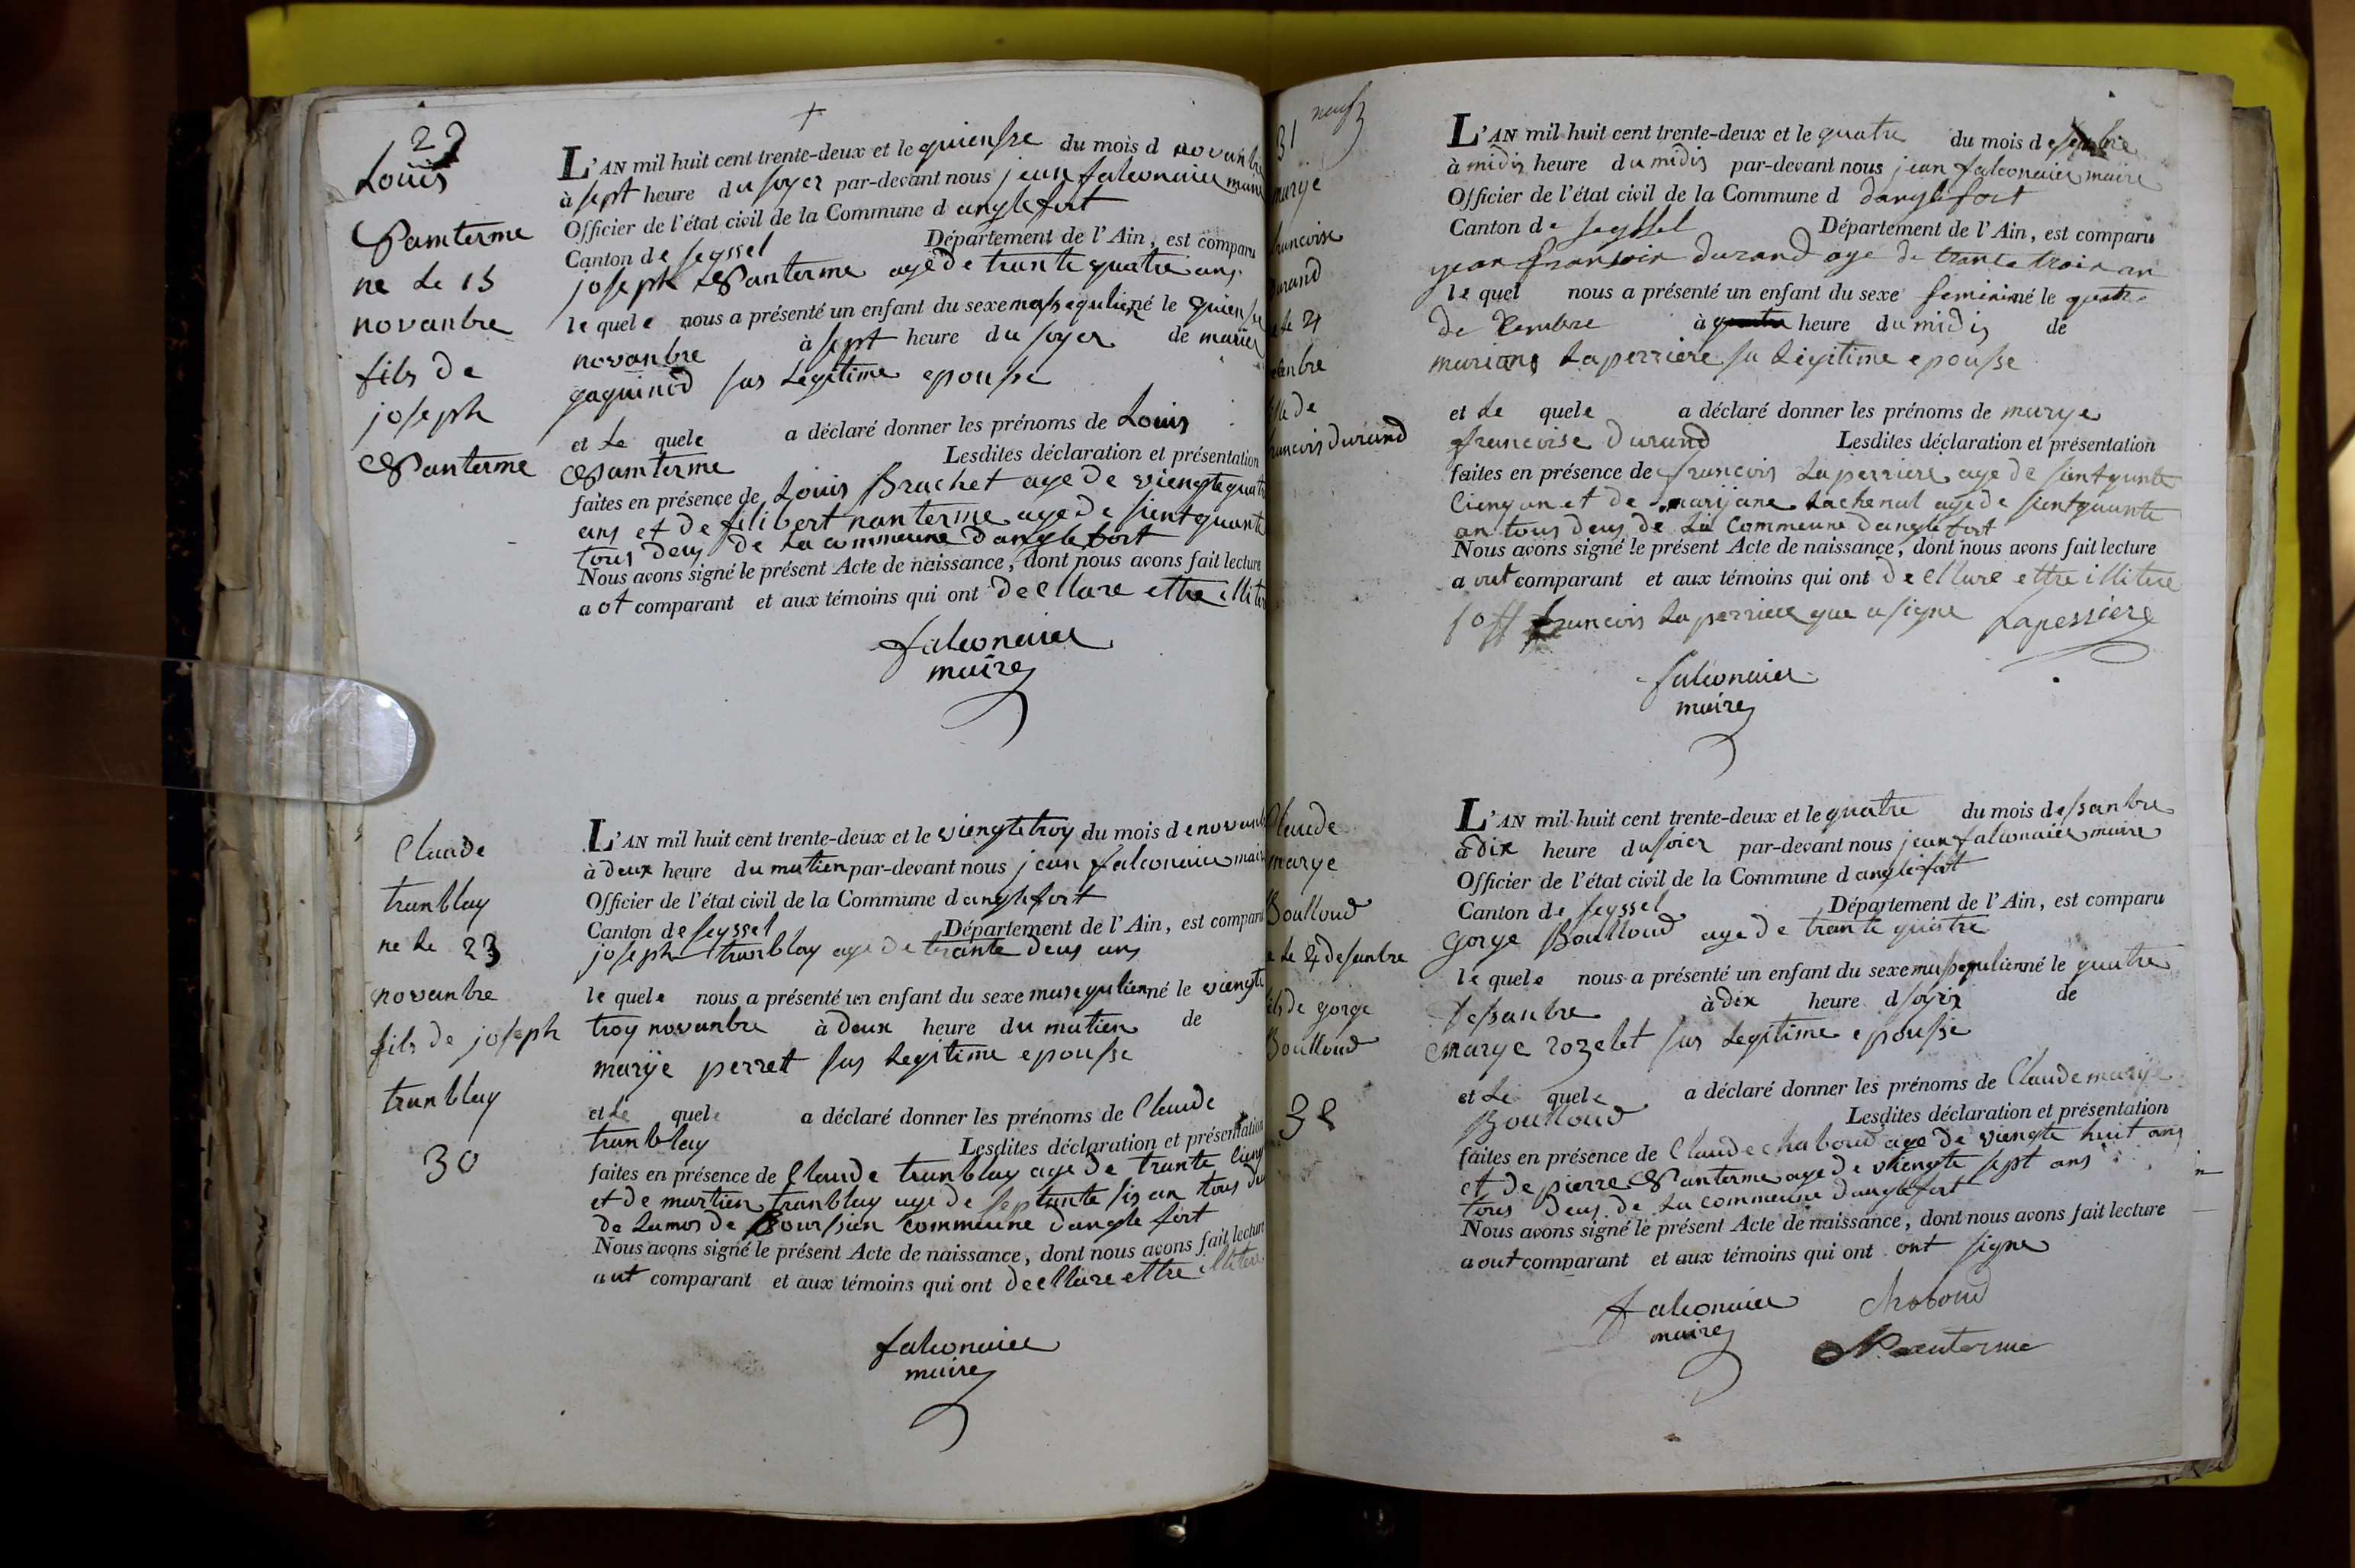 29
Louis
Nanterme
ne le 15
novanbre
fils de
joseph
Nanterme
L'AN mil huit cent trente-deux et le quiensse du mois d novanbre
à sept heure du soyer par-devant nous jean falconnier maire
Officier de l'état civil de la Commune d anglefort
Canton de seyssel Département de l'Ain, est comparu
joseph Nanterme agé de trante quatre ans
lequele nous a présenté un enfant du sexe massequlien né le quiensse
novanbre à sept heure du soyer de mariee
gaguined sas legitime epousse
et le quele a déclaré donner les prénoms de Louis
Nanterme Lesdites déclaration et présentation
faites en présence de Louis Brachet age de viengte quatre
ans et de filibert nanterme age de sientquante
tous deus de la commeune danglefort
Nous avons signé le présent Acte de naissance, dont nous avons fait lecture
a ot comparant et aux témoins qui ont decllare ettre illitere
falconnier
maire
Claude
tranblay
ne le 23
novanbre
fils de joseph
tranblay
30
L'AN mil huit cent trente-deux et le viengtetroy du mois de novanbre
à deux heure du matien par-devant nous jean falconnier maire
Officier de l'état civil de la Commune d anglefort
Canton de seyssel Département de l'Ain, est comparu
joseph tranblay age de trante deus ans
lequele nous a présenté un enfant du sexe massqulien né le viengte
troy novanbre à deux heure du matien de
marije perret sas legitime epousse
et le quele a déclaré donner les prénoms de Claude
tranblay Lesdites déclaration et présentation
faites en présence de Claude tranblay age de trante cienq
et de martien tranblay age de septante sis an tous deus
de lamos de Boursien commeune dangle fort
Nous avons signé le présent Acte de naissance, dont nous avons fait lecture
a ut comparant et aux témoins qui ont decllare ettre illitere
falconnier
maire
neuf
31
marye
francoise
durand
le 4
fille de
francois durand
L'AN mil huit cent trente-deux et le quatre du mois de
à midis heure du midis par-devant nous jean falconnier maire
Officier de l'état civil de la Commune d danglefort
Canton de seyssel Département de l'Ain, est comparu
jean fransoin durand age de trante troix an
lequel nous a présenté un enfant du sexe feminin né le quatre
de Cembre à quatre heure du midis de
mariane Laperriere sa legitime epousse
et le quele a déclaré donner les prénoms de marye
francoise durand Lesdites déclaration et présentation
faites en présence de francois Laperriere age de sientquante
Cienq an et de marijane Lachenal age de sientquante
an tous deus de La Commeune danglefort
Nous avons signé le présent Acte de naissance, dont nous avons fait lecture
a out comparant et aux témoins qui ont decllare ettre illitere
soff francois Laperriere que a signe Laperriere
falconnier
maire
Claude
marye
Boulloud
le 4 desanbre
fils de gorge
Boulloud
32
L'AN mil huit cent trente-deux et le quatre du mois dessanbre
à dix heure du soier par-devant nous jean falconnier maire
Officier de l'état civil de la Commune d anglefort
Canton de seyssel Département de l'Ain, est comparu
gorge Boulloud age de trante quatre
lequele nous a présenté un enfant du sexe massqulien né le quatre
dessanbre à dix heure d soyer de
marye rozelet sas legitime epousse
et le quele a déclaré donner les prénoms de Claude marije
Boulloud Lesdites déclaration et présentation
faites en présence de Claude chaboud age de viengte huit ans
et de pierre Nanterme age de viengte sept ans
tous deus de la commeune danglefort
Nous avons signé le présent Acte de naissance, dont nous avons fait lecture
a out comparant et aux témoins qui ont ont signe
falconnier chaboud
maire
Nanterme